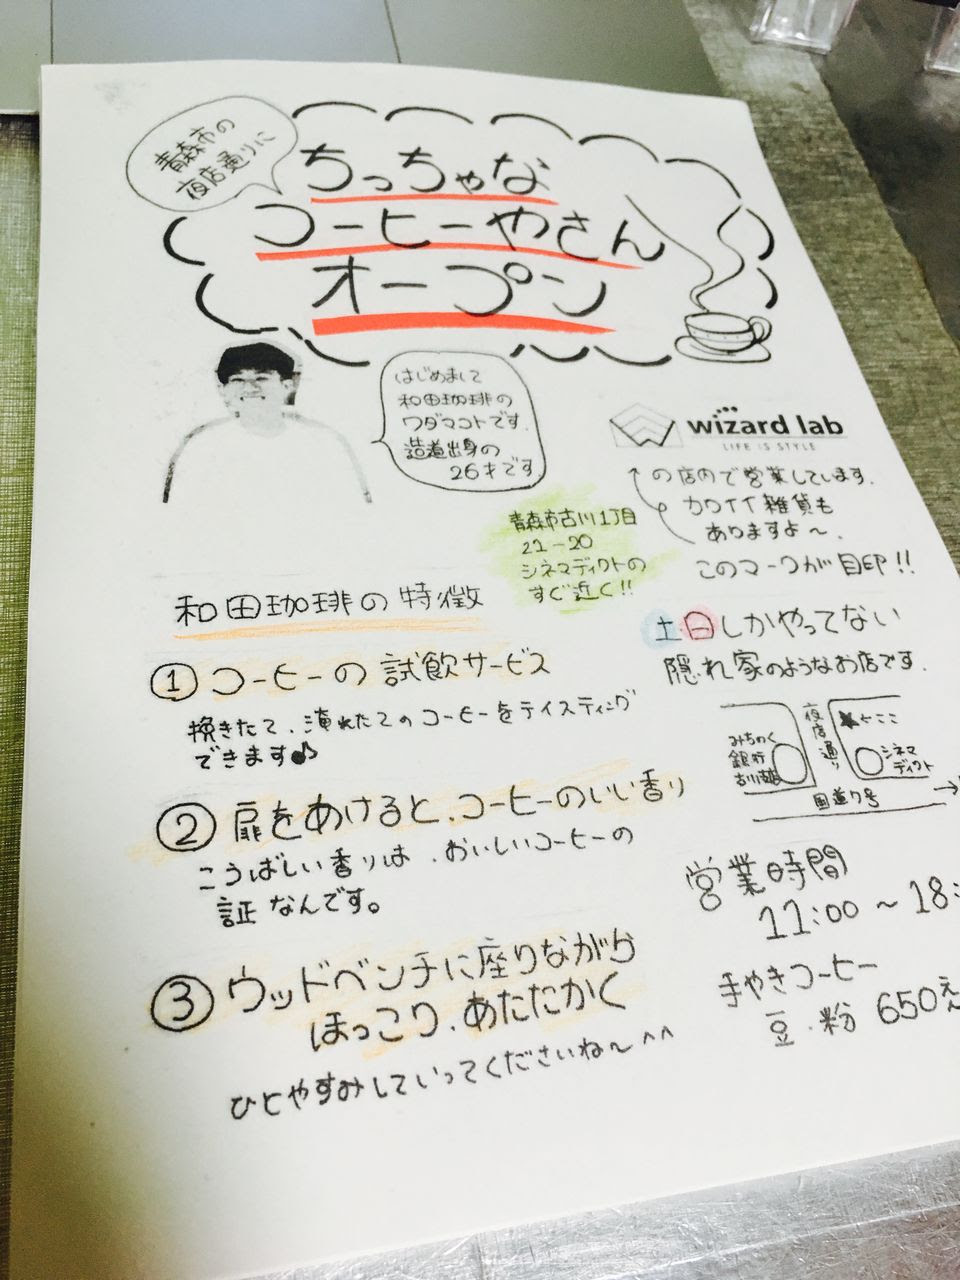 青森市の
夜店通りに
ちっちゃな
コーヒーやさん
オープン
はじめまして
和田珈琲の
ワダマコトです。
造道出身の
26才です
wizard lab
LIFE iS STYLE
の店内で営業しています。
カワイイ雑貨も
ありますよ～。
このマークが目印!!
青森市古川1丁目
21-20
シネマディクトの
すぐ近く!!
和田珈琲の特徴
① コーヒーの試飲サービス
挽きたて、淹れたてのコーヒーをテイスティング
できます♪
② 扉をあけると、コーヒーのいい香り
こうばしい香りは、おいしいコーヒーの
証なんです。
③ ウッドベンチに座りながら
ほっこり、あたたかく
ひとやすみしていってくださいね～^^
土・日しかやってない
隠れ家のようなお店です。
みちのく
銀行
夜店通り
★ここ
シネマ
ディクト
国道7号
営業時間
11:00～18:
手やきコーヒー
豆・粉 650え